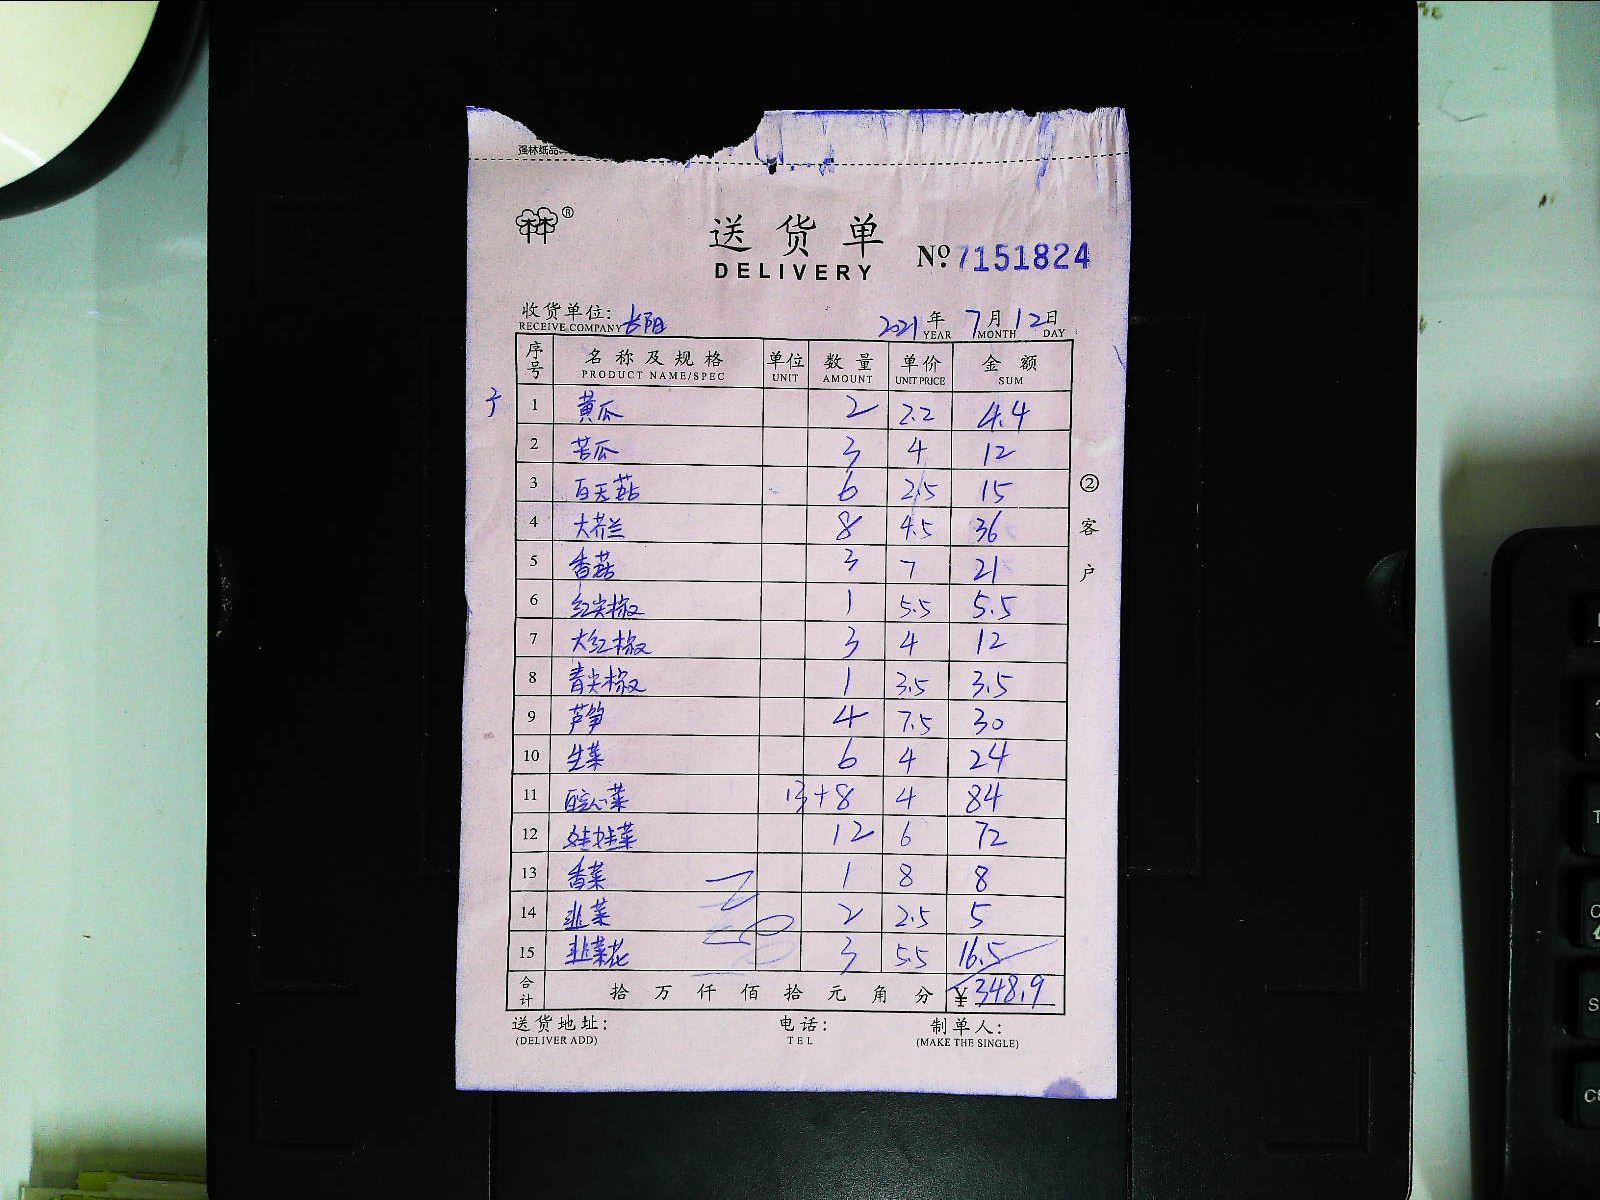 强林纸品
®
送货单
DELIVERY
No.7151824
收货单位: 长阳 2021年 7月12日
RECEIVE COMPANY YEAR MONTH DAY
序号 名称及规格 单位 数量 单价 金额
PRODUCT NAME/SPEC UNIT AMOUNT UNIT PRICE SUM
1 黄瓜 2 2.2 4.4
2 苦瓜 3 4 12
3 白天菇 6 2.5 15
4 大芥兰 8 4.5 36
5 香菇 3 7 21
6 红尖椒 1 5.5 5.5
7 大红椒 3 4 12
8 青尖椒 1 3.5 3.5
9 芦笋 4 7.5 30
10 生菜 6 4 24
11 白空心菜 13+8 4 84
12 娃娃菜 12 6 72
13 香菜 1 8 8
14 韭菜 2 2.5 5
15 韭菜花 3 5.5 16.5
合计 拾万仟佰拾元角分 ¥348.9
送货地址: 电话: 制单人:
(DELIVER ADD) TEL (MAKE THE SINGLE)
②客户